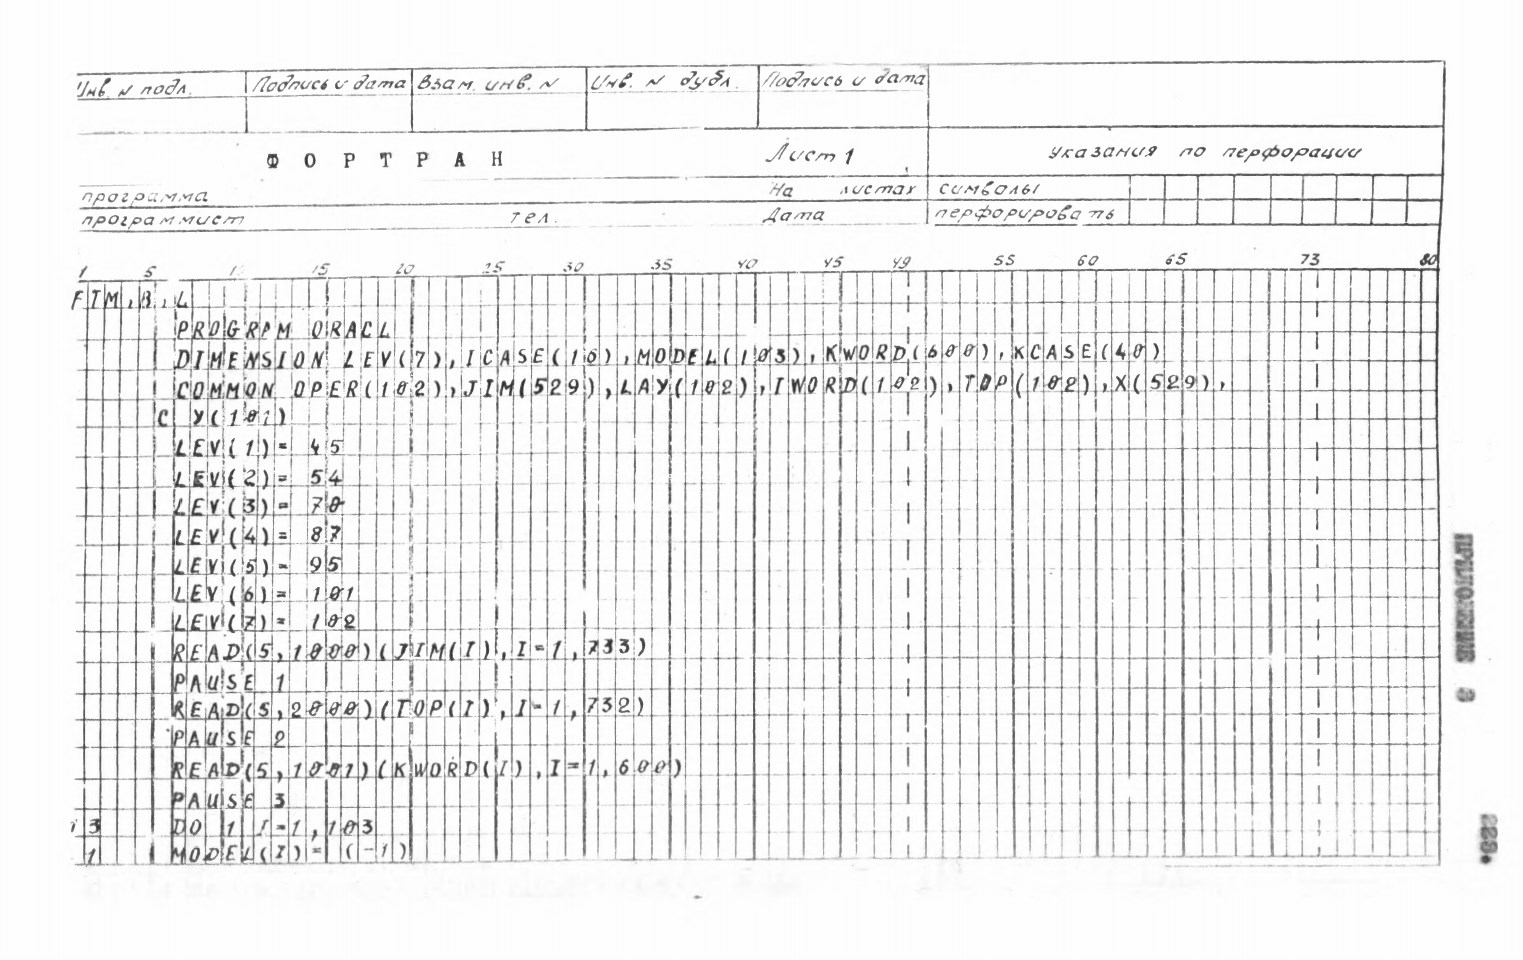 Инв. N подл. Подпись и дата Взам. инв. N Инв. N дубл. Подпись и дата
ФОРТРАН Лист 1 Указания по перфорации
программа На листах символы
программист тел. Дата перфорировать
1 5 15 20 25 30 35 40 45 49 55 60 65 73 80
FTM,B,L
PROGRAM ORACL
DIMENSION LEV(7),ICASE(16),MODEL(103),KWORD(600),KCASE(40)
COMMON OPER(102),JIM(529),LAY(102),IWORD(102),TOP(102),X(529),
C Y(101)
LEV(1)= 45
LEV(2)= 54
LEV(3)= 70
LEV(4)= 87
LEV(5)= 95
LEV(6)= 101
LEV(7)= 102
READ(5,1000)(JIM(I),I=1,733)
PAUSE 1
READ(5,2000)(TOP(I),I=1,732)
PAUSE 2
READ(5,1001)(KWORD(I),I=1,600)
PAUSE 3
13 DO 1 I=1,103
1 MODEL(I)= (-1)
ПРИЛОЖЕНИЕ 3